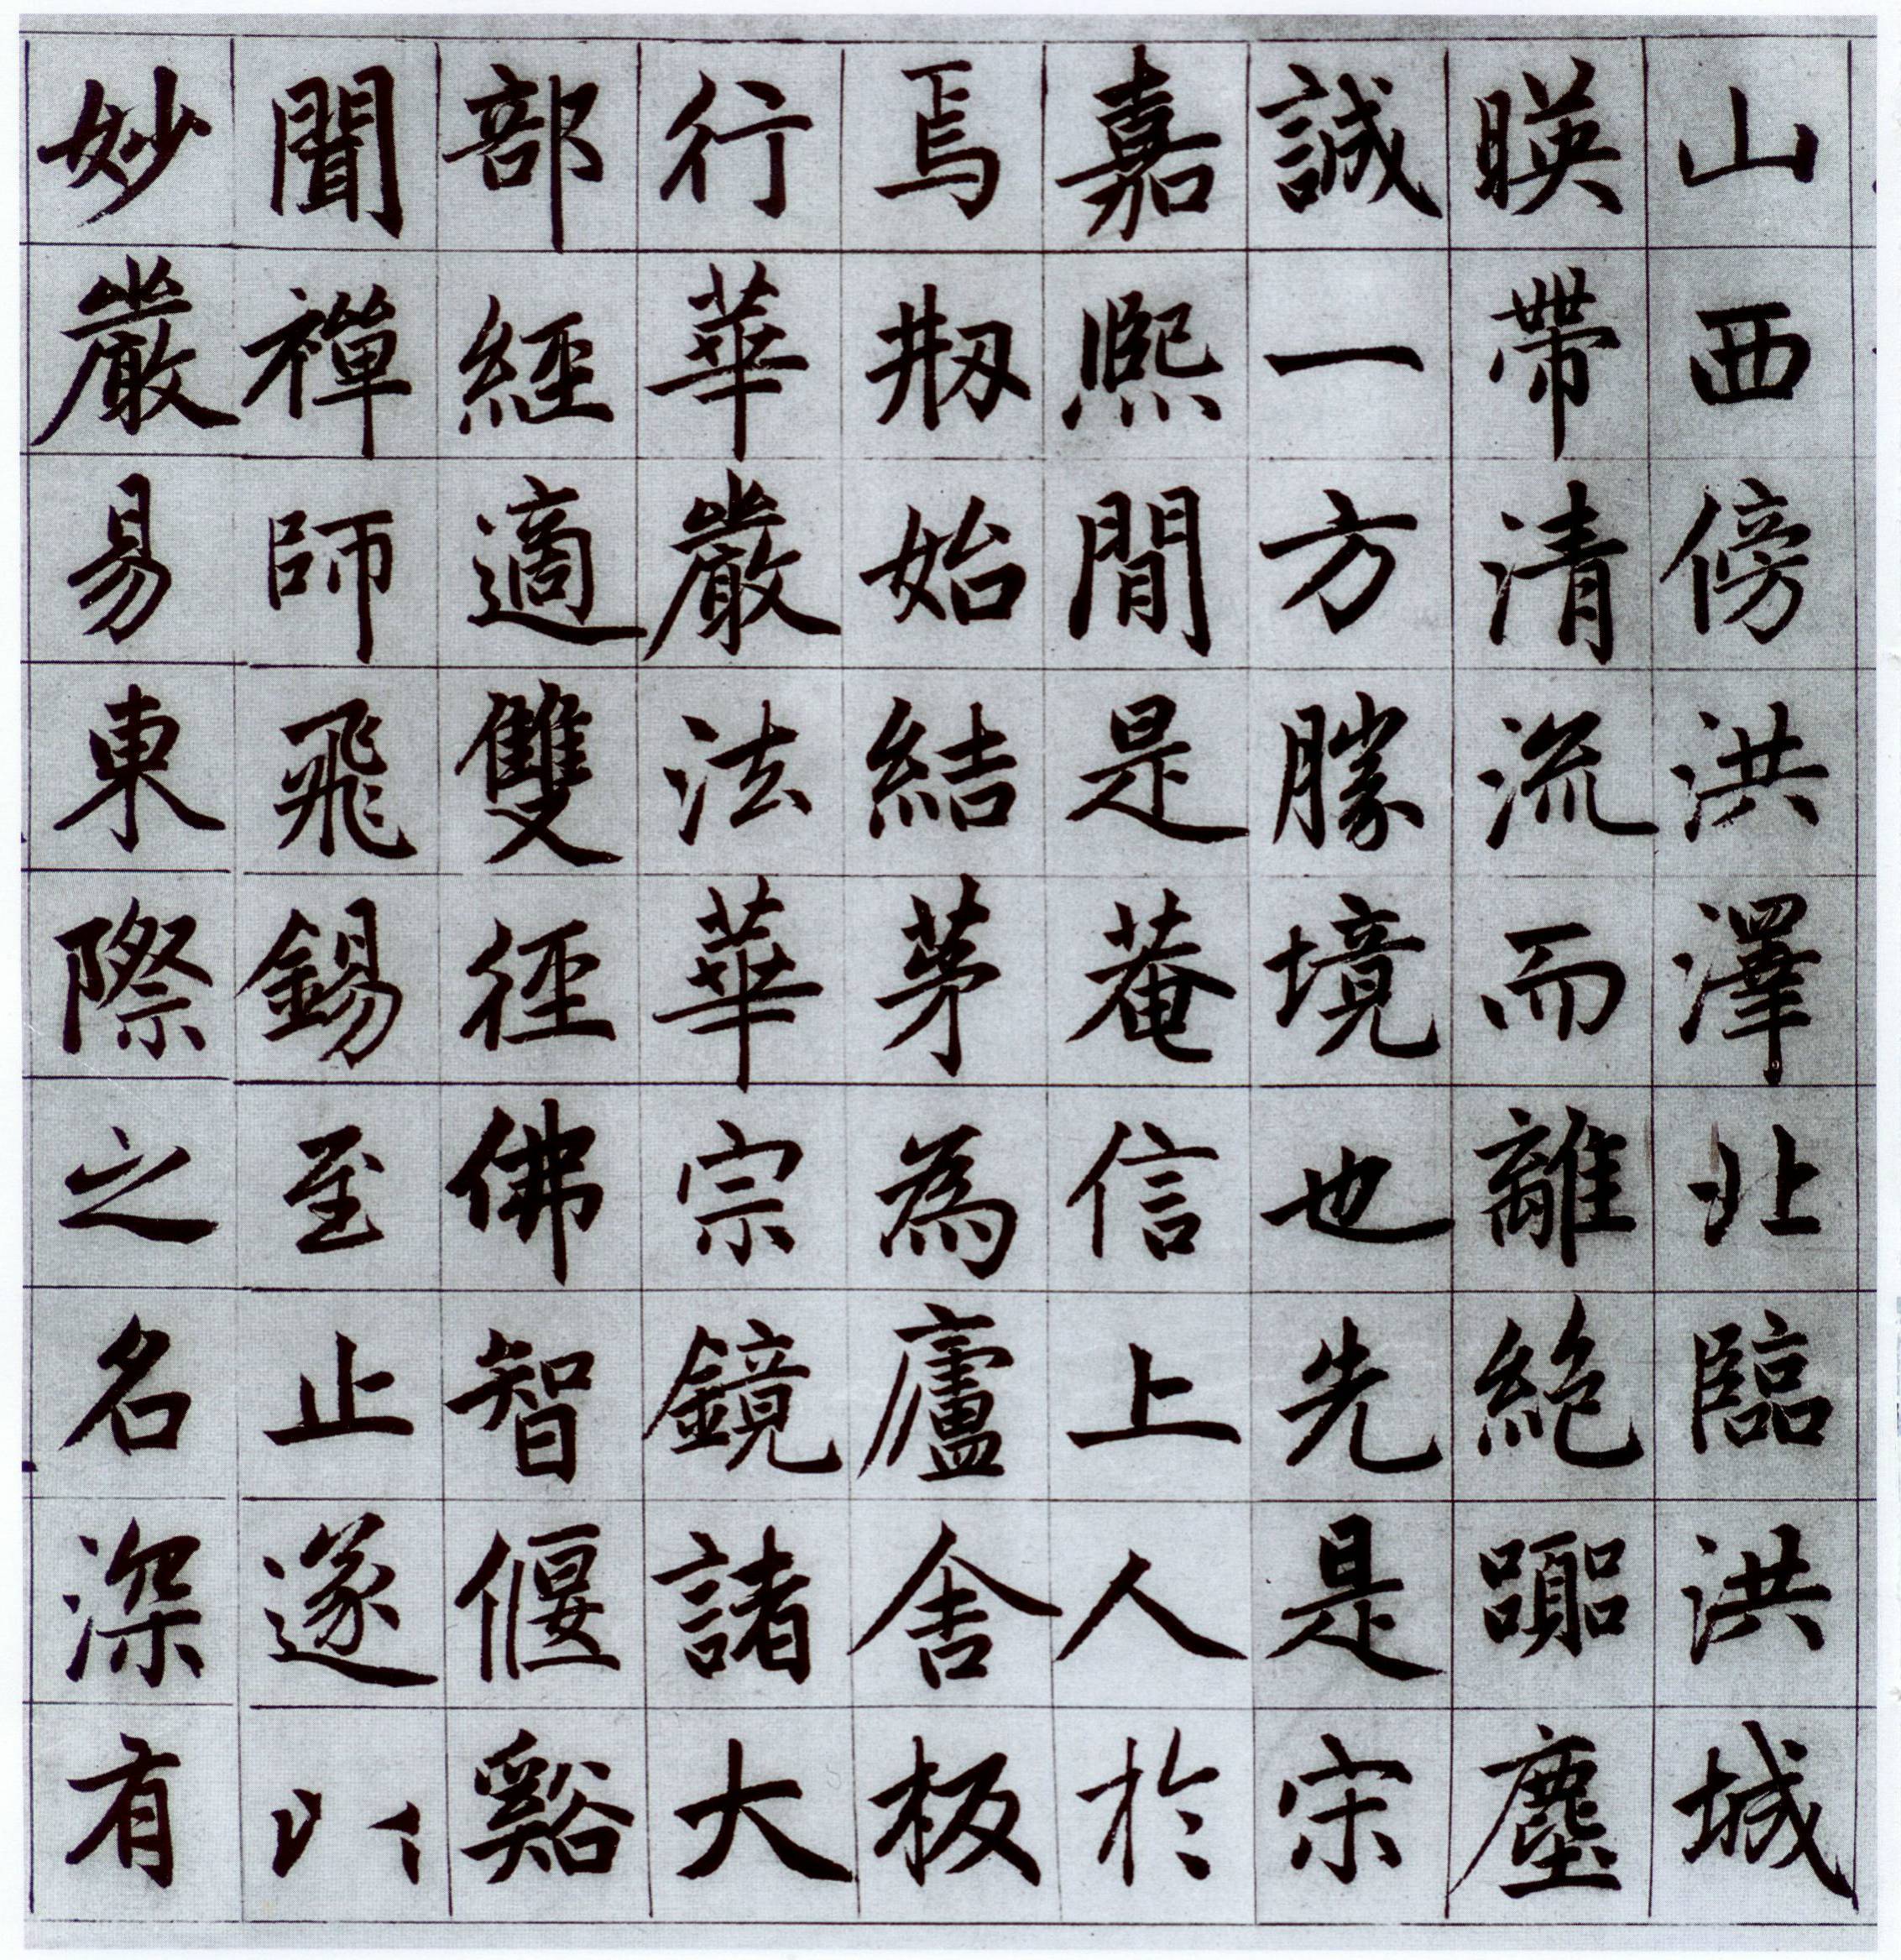 山西傍洪澤北臨洪城
暎帶清流而離絶嚻塵
誠一方勝境也先是宋
嘉熙間是菴信上人於
焉刱始結茅為廬舍板
行華嚴法華宗鏡諸大
部經適雙徑佛智偃谿
聞禪師飛錫至止遂以
妙嚴易東際之名深有